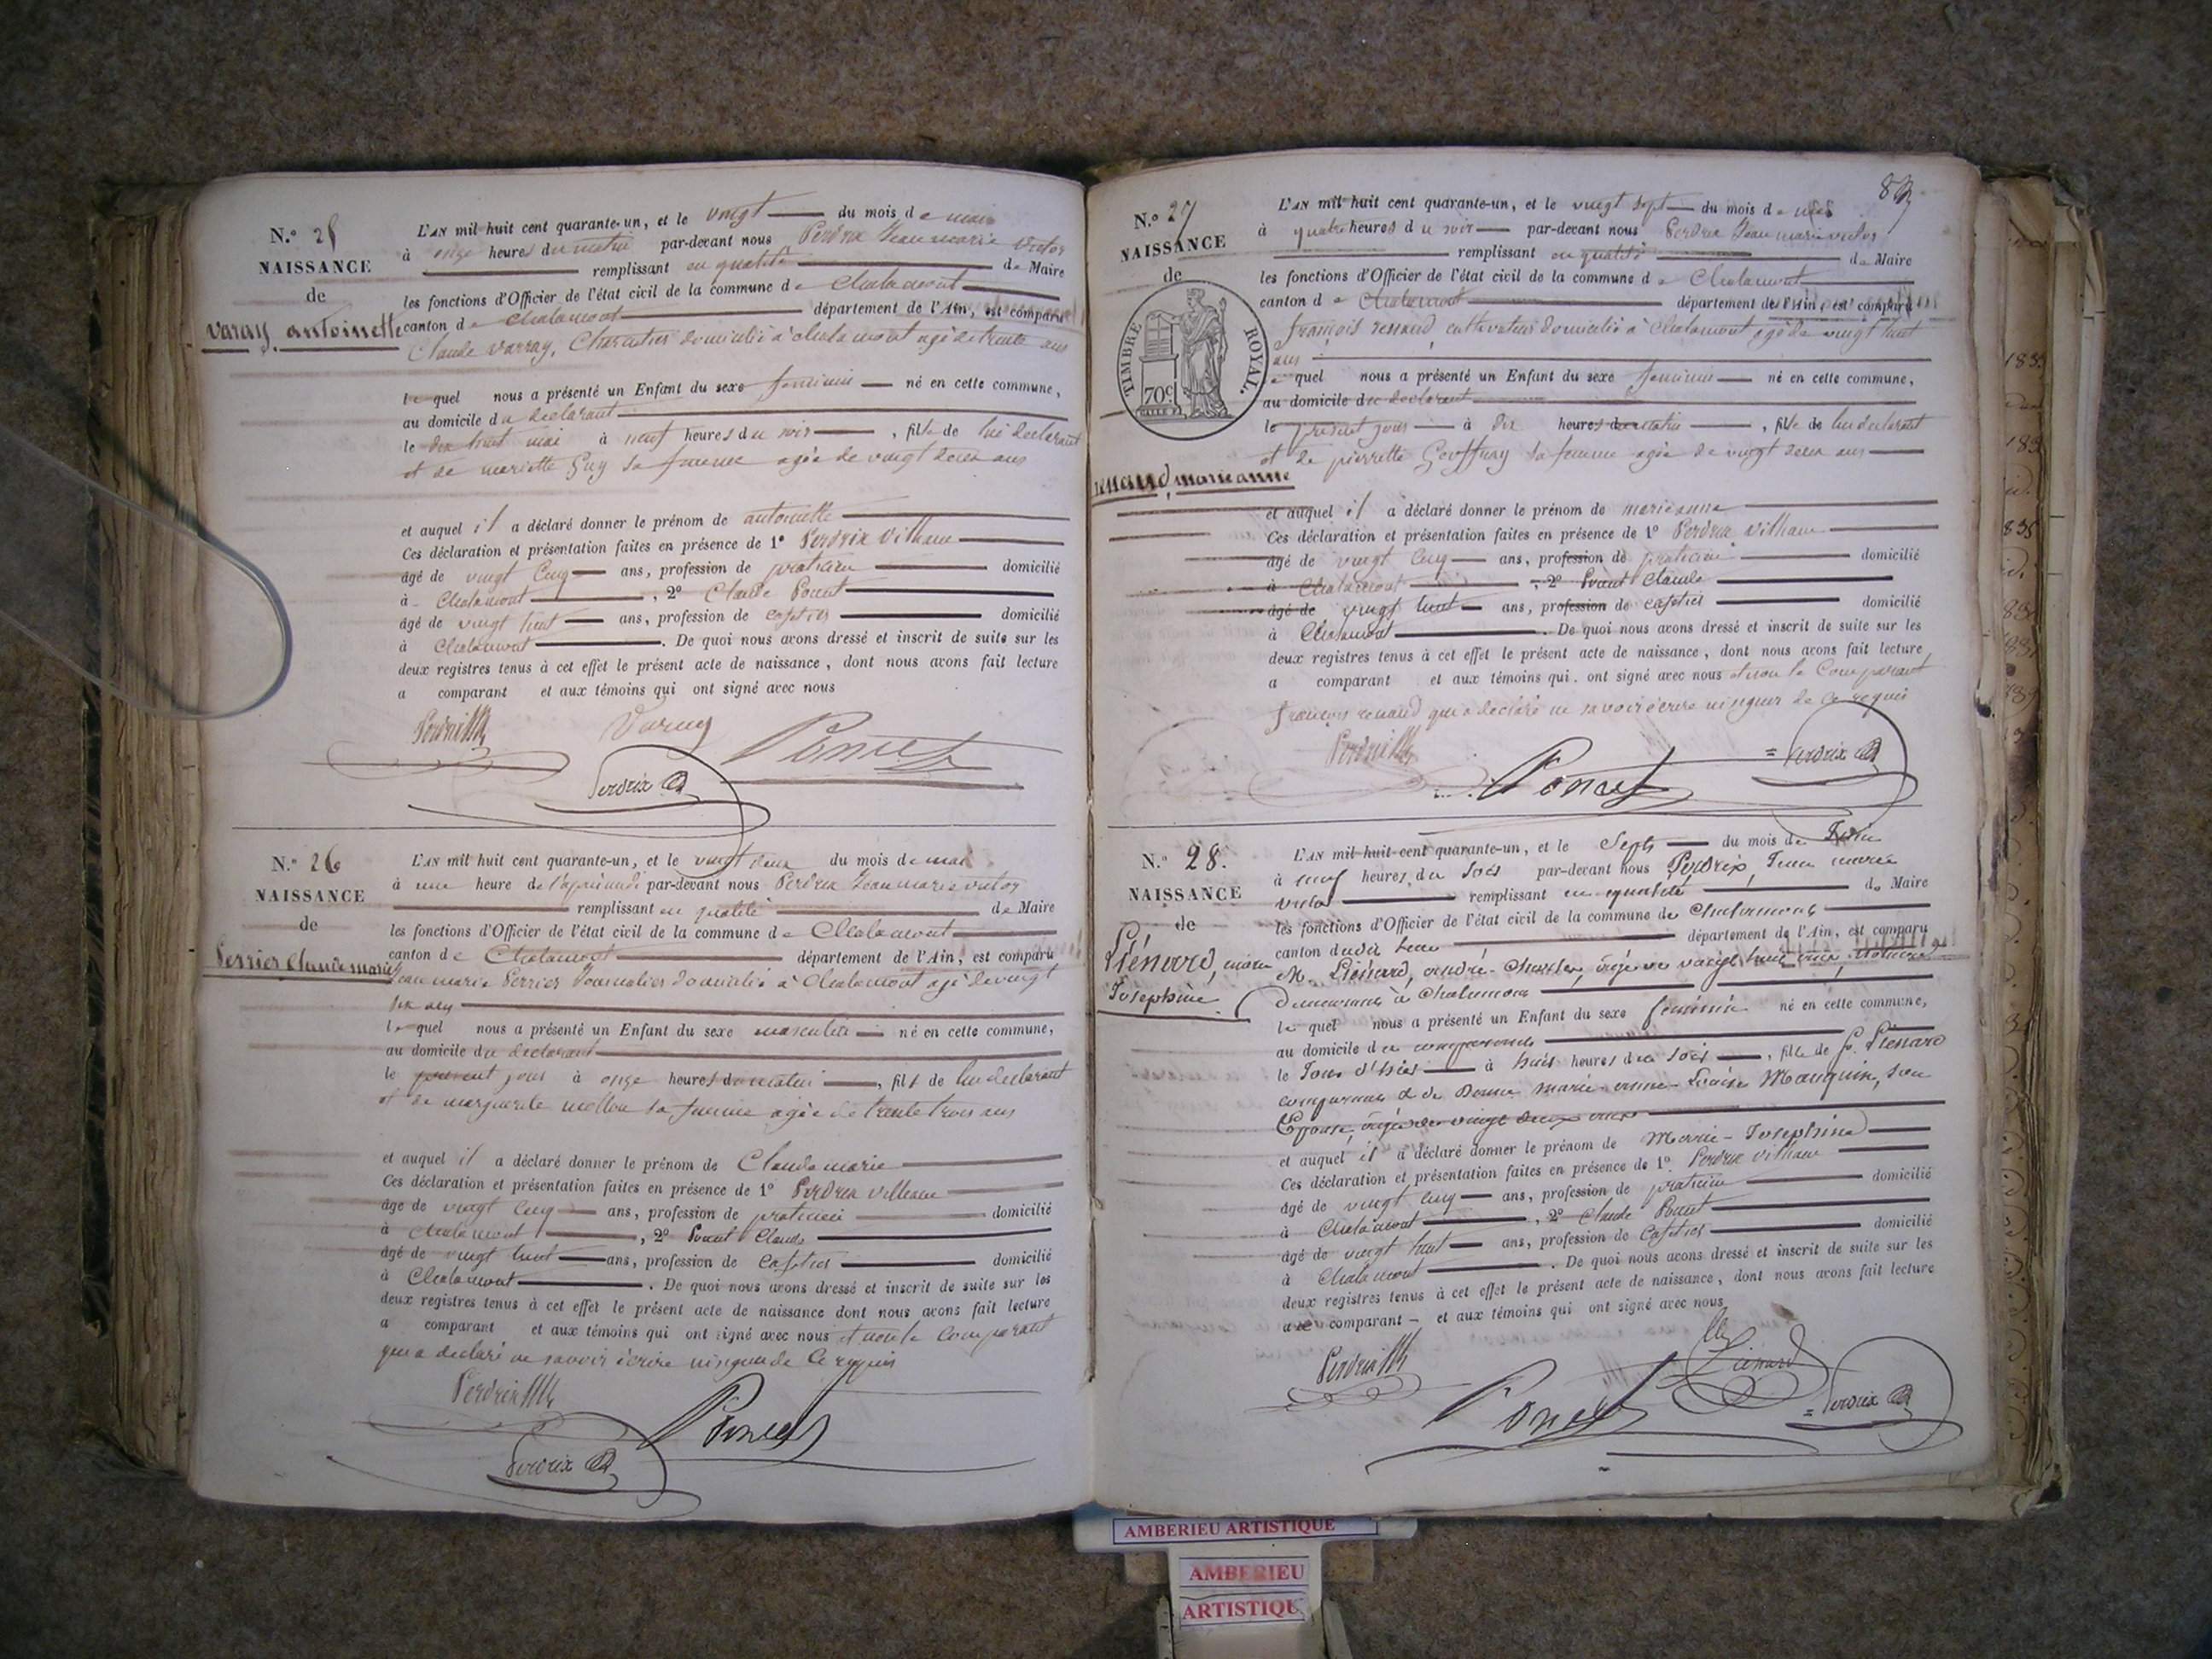 N.° 25
NAISSANCE
de
Varay, antoinette
L'AN mil huit cent quarante-un, et le vingt du mois de mai
à onze heures du matin par-devant nous Perdrix Jean marie victor
remplissant en qualité de Maire
les fonctions d'Officier de l'état civil de la commune de Chalamont
canton de Chalamont département de l'Ain, est comparu
Claude Varray, Charcutier domicilié à chalamont agé de trente ans
le quel nous a présenté un Enfant du sexe feminin né en cette commune,
au domicile du declarant
le dix huit mai à neuf heures du soir, fille de lui declarant
et de mariette Guy sa femme agée de vingt deux ans
et auquel il a déclaré donner le prénom de antoinette
Ces déclaration et présentation faites en présence de 1° Perdrix
âgé de vingt cinq ans, profession de praticien domicilié
à Chalamont, 2° Claude Poncet
âgé de vingt huit ans, profession de cafetier domicilié
à Chalamont. De quoi nous avons dressé et inscrit de suite sur les
deux registres tenus à cet effet le présent acte de naissance, dont nous avons fait lecture
a comparant et aux témoins qui ont signé avec nous
Perdrix Varay Poncet
Perdrix
N.° 26
NAISSANCE
de
Perrier Claude marie
L'AN mil huit cent quarante-un, et le vingt deux du mois de mai
à une heure de l'apremidi par-devant nous Perdrix Jean marie victor
remplissant en qualité de Maire
les fonctions d'Officier de l'état civil de la commune de Chalamont
canton de Chalamont département de l'Ain, est comparu
Jean marie Perrier Journalier domicilié à Chalamont agé de vingt
six ans
le quel nous a présenté un Enfant du sexe masculin né en cette commune,
au domicile du declarant
le present jour à onze heures du matin, fils de lui declarant
et de marguerite sa femme agée de trente trois ans
et auquel il a déclaré donner le prénom de Claude marie
Ces déclaration et présentation faites en présence de 1° Perdrix
âgé de vingt cinq ans, profession de praticien domicilié
à Chalamont, 2° Poncet Claude
âgé de vingt huit ans, profession de Cafetier domicilié
à Chalamont. De quoi nous avons dressé et inscrit de suite sur les
deux registres tenus à cet effet le présent acte de naissance dont nous avons fait lecture
a comparant et aux témoins qui ont signé avec nous et non le comparant
qui a declaré ne savoir écrire ni signer de ce requis
Perdrix Poncet
Perdrix
N.° 27
NAISSANCE
de
TIMBRE ROYAL.
70c
renaud, marie anne
L'AN mil huit cent quarante-un, et le vingt sept du mois de mai
à quatre heures du soir par-devant nous Perdrix Jean marie victor
remplissant en qualité de Maire
les fonctions d'Officier de l'état civil de la commune de Chalamont
canton de Chalamont département de l'Ain, est comparu
françois renaud, cultivateur domicilié à Chalamont agé de vingt huit
ans
le quel nous a présenté un Enfant du sexe feminin né en cette commune,
au domicile du declarant
le present jour à dix heures du matin, fille de lui declarant
et de pierrette Geoffray sa femme agée de vingt deux ans
et auquel il a déclaré donner le prénom de marie anne
Ces déclaration et présentation faites en présence de 1° Perdrix
âgé de vingt cinq ans, profession de praticien domicilié
à Chalamont, 2° Poncet Claude
âgé de vingt huit ans, profession de cafetier domicilié
à Chalamont. De quoi nous avons dressé et inscrit de suite sur les
deux registres tenus à cet effet le présent acte de naissance, dont nous avons fait lecture
a comparant et aux témoins qui ont signé avec nous et non le Comparant
françois renaud qui a declaré ne savoir écrire ni signer de ce requis
Perdrix Poncet Perdrix
N.° 28.
NAISSANCE
de
Liénard, marie
Josephine
L'AN mil huit cent quarante-un, et le Sept du mois de Juin
à neuf heures du soir par-devant nous Perdrix, Jean marie
victor remplissant en qualité de Maire
les fonctions d'Officier de l'état civil de la commune de Chalamont
canton dudit lieu département de l'Ain, est comparu
M. Liénard, andré-Charles, âgé de vingt huit ans
demeurant à Chalamont
le quel nous a présenté un Enfant du sexe féminin né en cette commune,
au domicile du comparant
le Jour d'hier à huit heures du soir, fille de Liénard
comparant & de Dame marie-anne-Louise Mauguin, son
Epouse, âgée de vingt deux ans
et auquel il a déclaré donner le prénom de Marie-Josephine
Ces déclaration et présentation faites en présence de 1° Perdrix
âgé de vingt cinq ans, profession de praticien domicilié
à Chalamont, 2° Claude Poncet
âgé de vingt huit ans, profession de Cafetier domicilié
à Chalamont. De quoi nous avons dressé et inscrit de suite sur les
deux registres tenus à cet effet le présent acte de naissance, dont nous avons fait lecture
au comparant et aux témoins qui ont signé avec nous
Perdrix Poncet Liénard Perdrix
AMBERIEU ARTISTIQUE
AMBERIEU
ARTISTIQUE